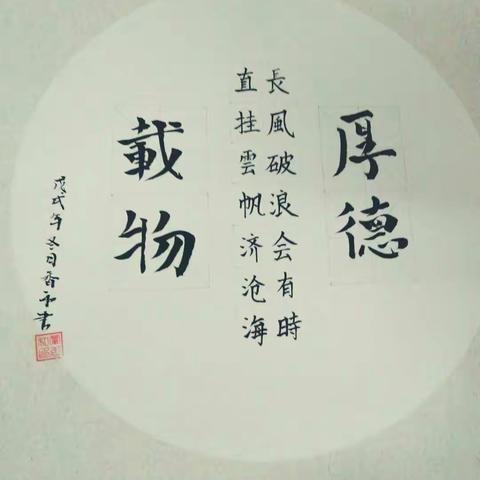 厚德
長風破浪会有時
直挂雲帆济沧海
載物
戊戌年冬日香和書